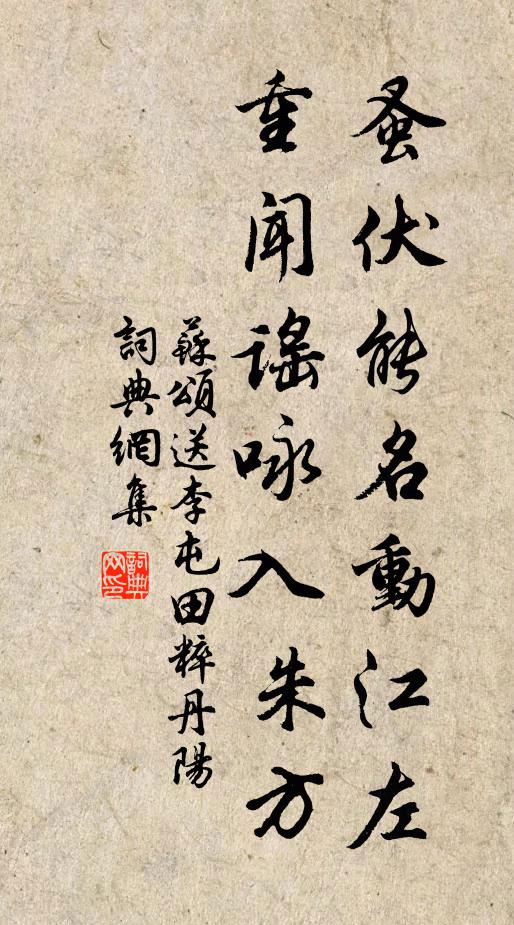 蚤伏能名動江左
重闻謡咏入朱方
蘇頌送李屯田粹丹陽
詞典網集
詞典网印